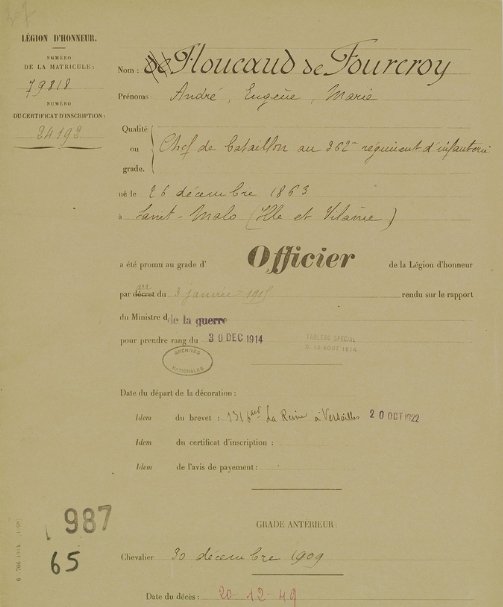 LÉGION D'HONNEUR.
NUMÉRO
DE LA MATRICULE:
79818
NUMÉRO
DE CERTIFICAT D'INSCRIPTION:
24192
Nom: de Floucaud de Fourcroy
Prénoms André, Eugène, Marie
Qualité
ou
grade.
Chef de Bataillon au 362e régiment d'infanterie
né le 26 décembre 1863
à Saint-Malo (Ille et Vilaine)
a été promu au grade d'Officier de la Légion d'honneur
par décret du 3 janvier 1915 rendu sur le rapport
du Ministre de la guerre
pour prendre rang du 30 DEC 1914
ARCHIVES
NATIONALES
Date du départ de la décoration:
Idem du brevet: La Reine à Versailles 20 OCT 1922
Idem du certificat d'inscription:
Idem de l'avis de payement:
987
65
GRADE ANTÉRIEUR:
Chevalier 30 décembre 1909
Date du décès: 20-12-49